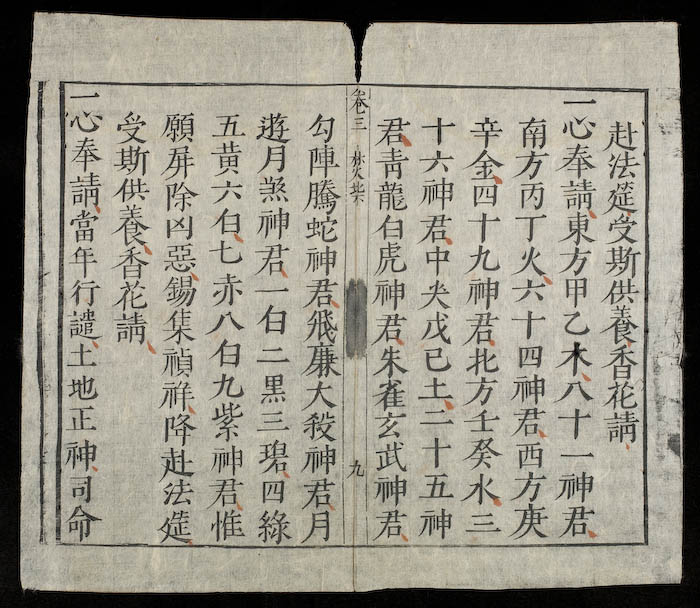 赴法筵受斯供養香花請
一心奉請東方甲乙木八十一神君
南方丙丁火六十四神君西方庚
辛金四十九神君北方壬癸水三
十六神君中央戊己土二十五神
君青龍白虎神君朱雀玄武神君
卷三
九
勾陣騰蛇神君飛廉大殺神君月
遊月煞神君一白二黑三碧四綠
五黃六白七赤八白九紫神君惟
願屏除凶惡錫集禎祥降赴法筵
受斯供養香花請
一心奉請當年行譴土地正神司命